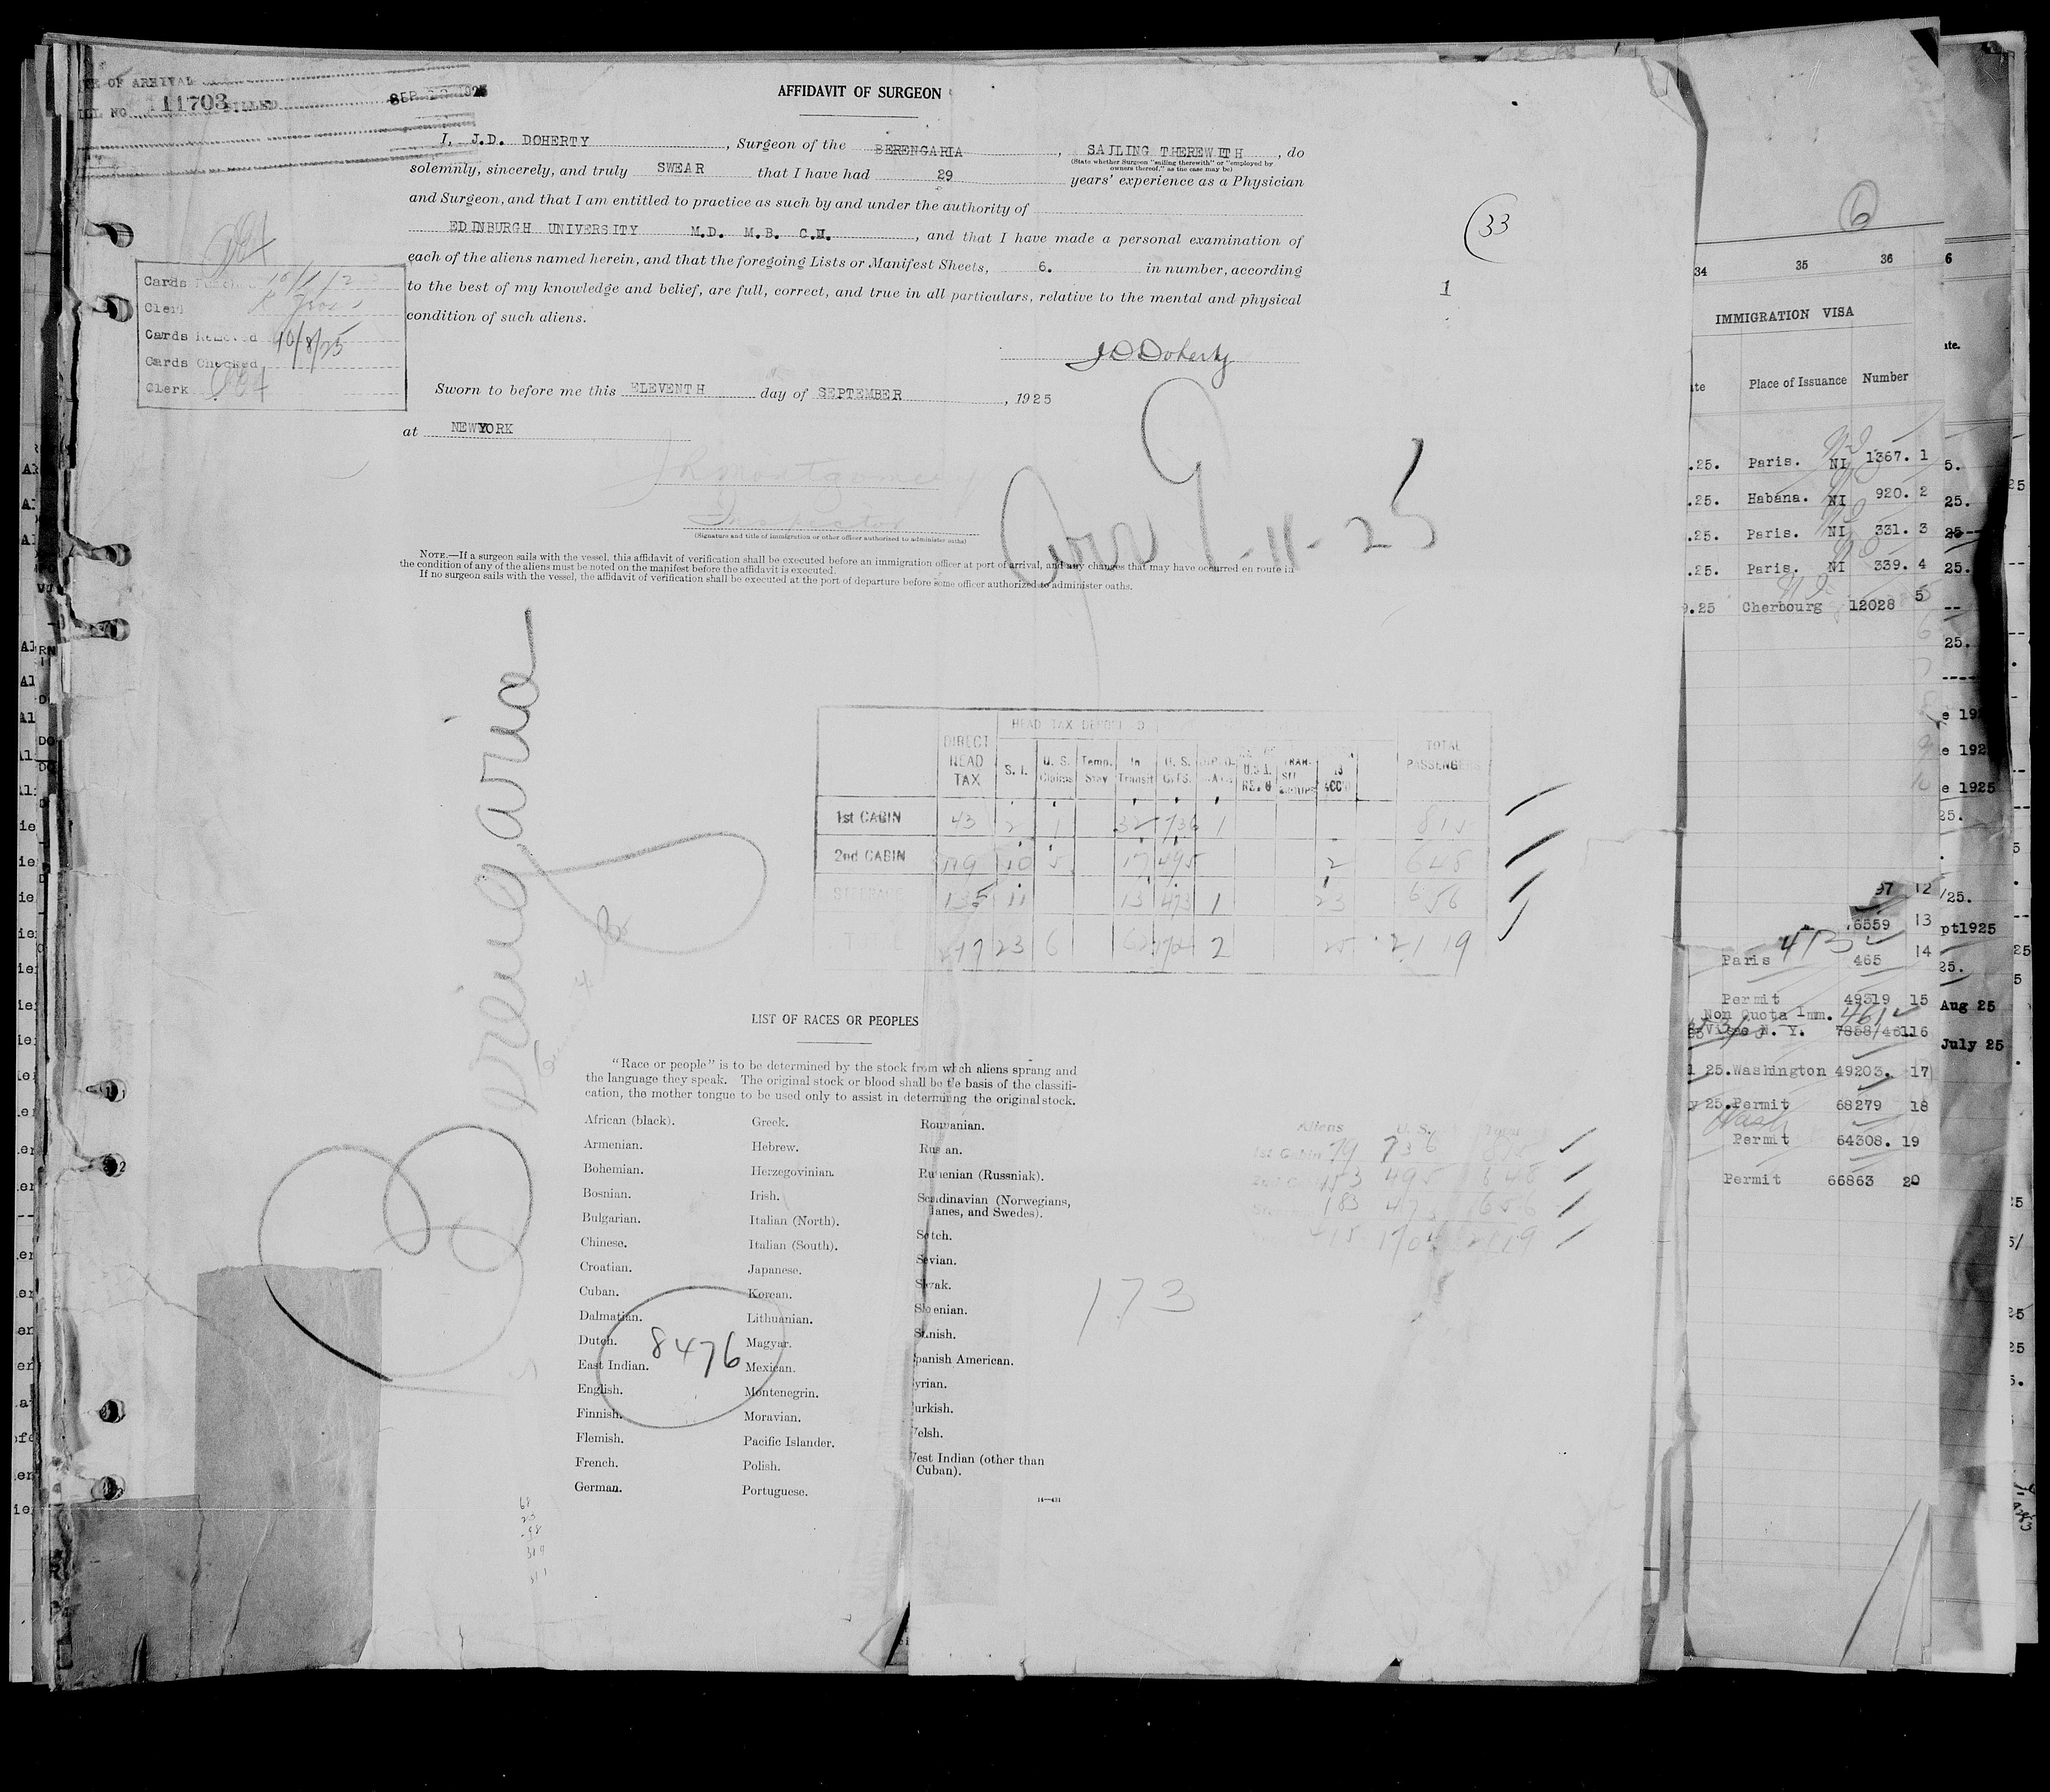 OF ARRIVAL
NO. 111703
AFFIDAVIT OF SURGEON
I, J.D. DOHERTY, Surgeon of the BERENGARIA, SAILING THEREWITH, do
(State whether Surgeon "sailing therewith" or "employed by
owners thereof," as the case may be)
solemnly, sincerely, and truly SWEAR that I have had 29 years' experience as a Physician
and Surgeon, and that I am entitled to practice as such by and under the authority of
EDINBURGH UNIVERSITY M.D. M.B. C.M., and that I have made a personal examination of
each of the aliens named herein, and that the foregoing Lists or Manifest Sheets, 6. in number, according
to the best of my knowledge and belief, are full, correct, and true in all particulars, relative to the mental and physical
condition of such aliens.
J D Doherty
Sworn to before me this ELEVENTH day of SEPTEMBER, 1925
at NEWYORK
Inspector
(Signature and title of immigration or other officer authorized to administer oaths)
NOTE.—If a surgeon sails with the vessel, this affidavit of verification shall be executed before an immigration officer at port of arrival, and any changes that may have occurred en route in
the condition of any of the aliens must be noted on the manifest before the affidavit is executed.
If no surgeon sails with the vessel, the affidavit of verification shall be executed at the port of departure before some officer authorized to administer oaths.
Cards
Clerk
Cards 10/8/25
Cards Checked
Clerk
33
1
Arr 9-11-25
Berengaria
HEAD TAX DEPOSITED
DIRECT HEAD TAX
S. I.
U. S. Claims
Temp. Stay
In Transit
U. S. CITS.
TOTAL PASSENGERS
1st CABIN 43 2 1 32 736 1 815
2nd CABIN 119 10 5 17 495 2 648
STEERAGE 135 11 13 473 1 23 656
TOTAL 297 23 6 62 1704 2 25 2119
LIST OF RACES OR PEOPLES
"Race or people" is to be determined by the stock from which aliens sprang and
the language they speak. The original stock or blood shall be the basis of the classifi-
cation, the mother tongue to be used only to assist in determining the original stock.
African (black).
Armenian.
Bohemian.
Bosnian.
Bulgarian.
Chinese.
Croatian.
Cuban.
Dalmatian.
Dutch.
East Indian.
English.
Finnish.
Flemish.
French.
German.
Greek.
Hebrew.
Herzegovinian.
Irish.
Italian (North).
Italian (South).
Japanese.
Korean.
Lithuanian.
Magyar.
Mexican.
Montenegrin.
Moravian.
Pacific Islander.
Polish.
Portuguese.
Roumanian.
Rus an.
Ru enian (Russniak).
Scandinavian (Norwegians,
Danes, and Swedes).
Sc tch.
Se vian.
Sl vak.
Slo enian.
S anish.
panish American.
yrian.
urkish.
elsh.
West Indian (other than
Cuban).
14—431
8476
Aliens U. S.
1st Cabin 79 736 815
153 495 648
183 473 656
415 1704 2119
173
6
34 35 36
IMMIGRATION VISA
Place of Issuance Number
.25. Paris. NI 1367. 1
.25. Habana. NI 920. 2
.25. Paris. NI 331. 3
.25. Paris. NI 339. 4
.25 Cherbourg 12028 5
97 12
6559 13
413
Paris 465 14
Permit 49319 15
Non Quota Imm. 461
N. Y. 16
25. Washington 49203. 17
25. Permit 68279 18
Permit 64308. 19
Permit 66863 20
6
25.
e 1925
pt1925
Aug 25
July 25